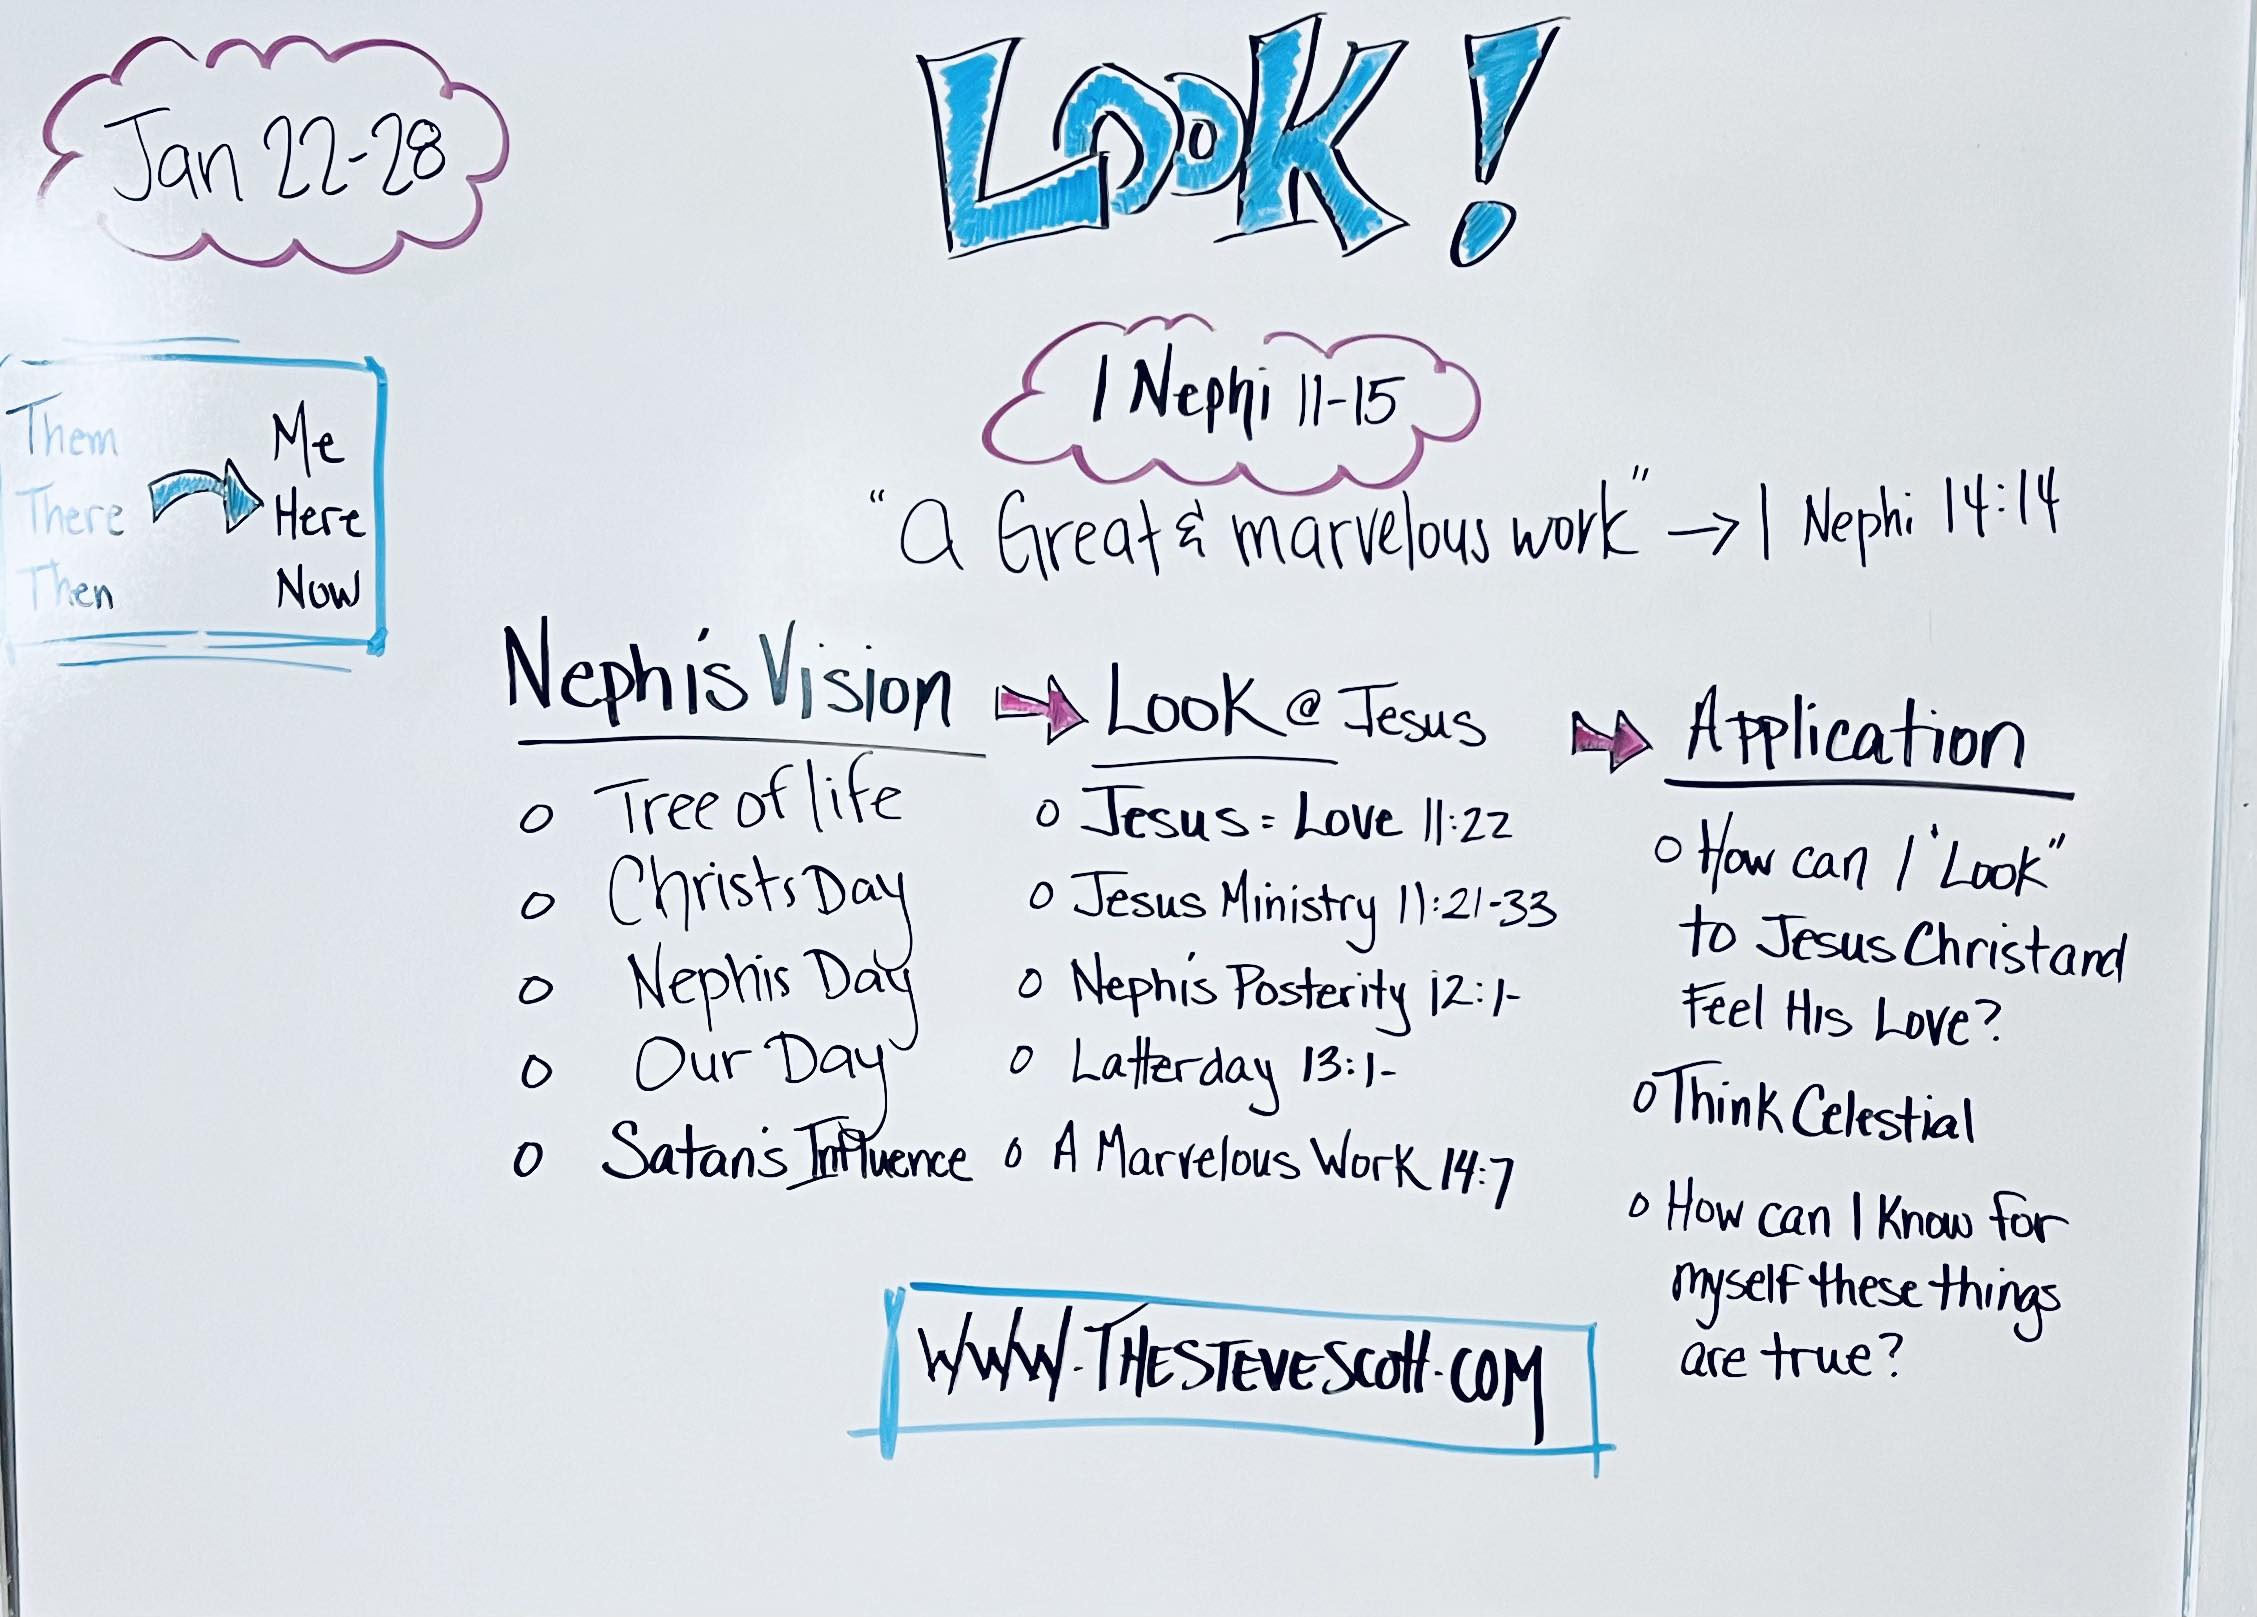 Jan 22-28
LOOK!
Them Me
There Here
Then Now
1 Nephi 11-15
"A Great & marvelous work" → 1 Nephi 14:14
Nephi's Vision
o Tree of life
o Christs Day
o Nephis Day
o Our Day
o Satan's Influence
Look @ Jesus
o Jesus = Love 11:22
o Jesus Ministry 11:21-33
o Nephi's Posterity 12:1-
o Latterday 13:1-
o A Marvelous Work 14:7
Application
o How can I "Look"
to Jesus Christ and
Feel His Love?
o Think Celestial
o How can I Know for
myself these things
are true?
WWW.THESTEVESCOTT.COM